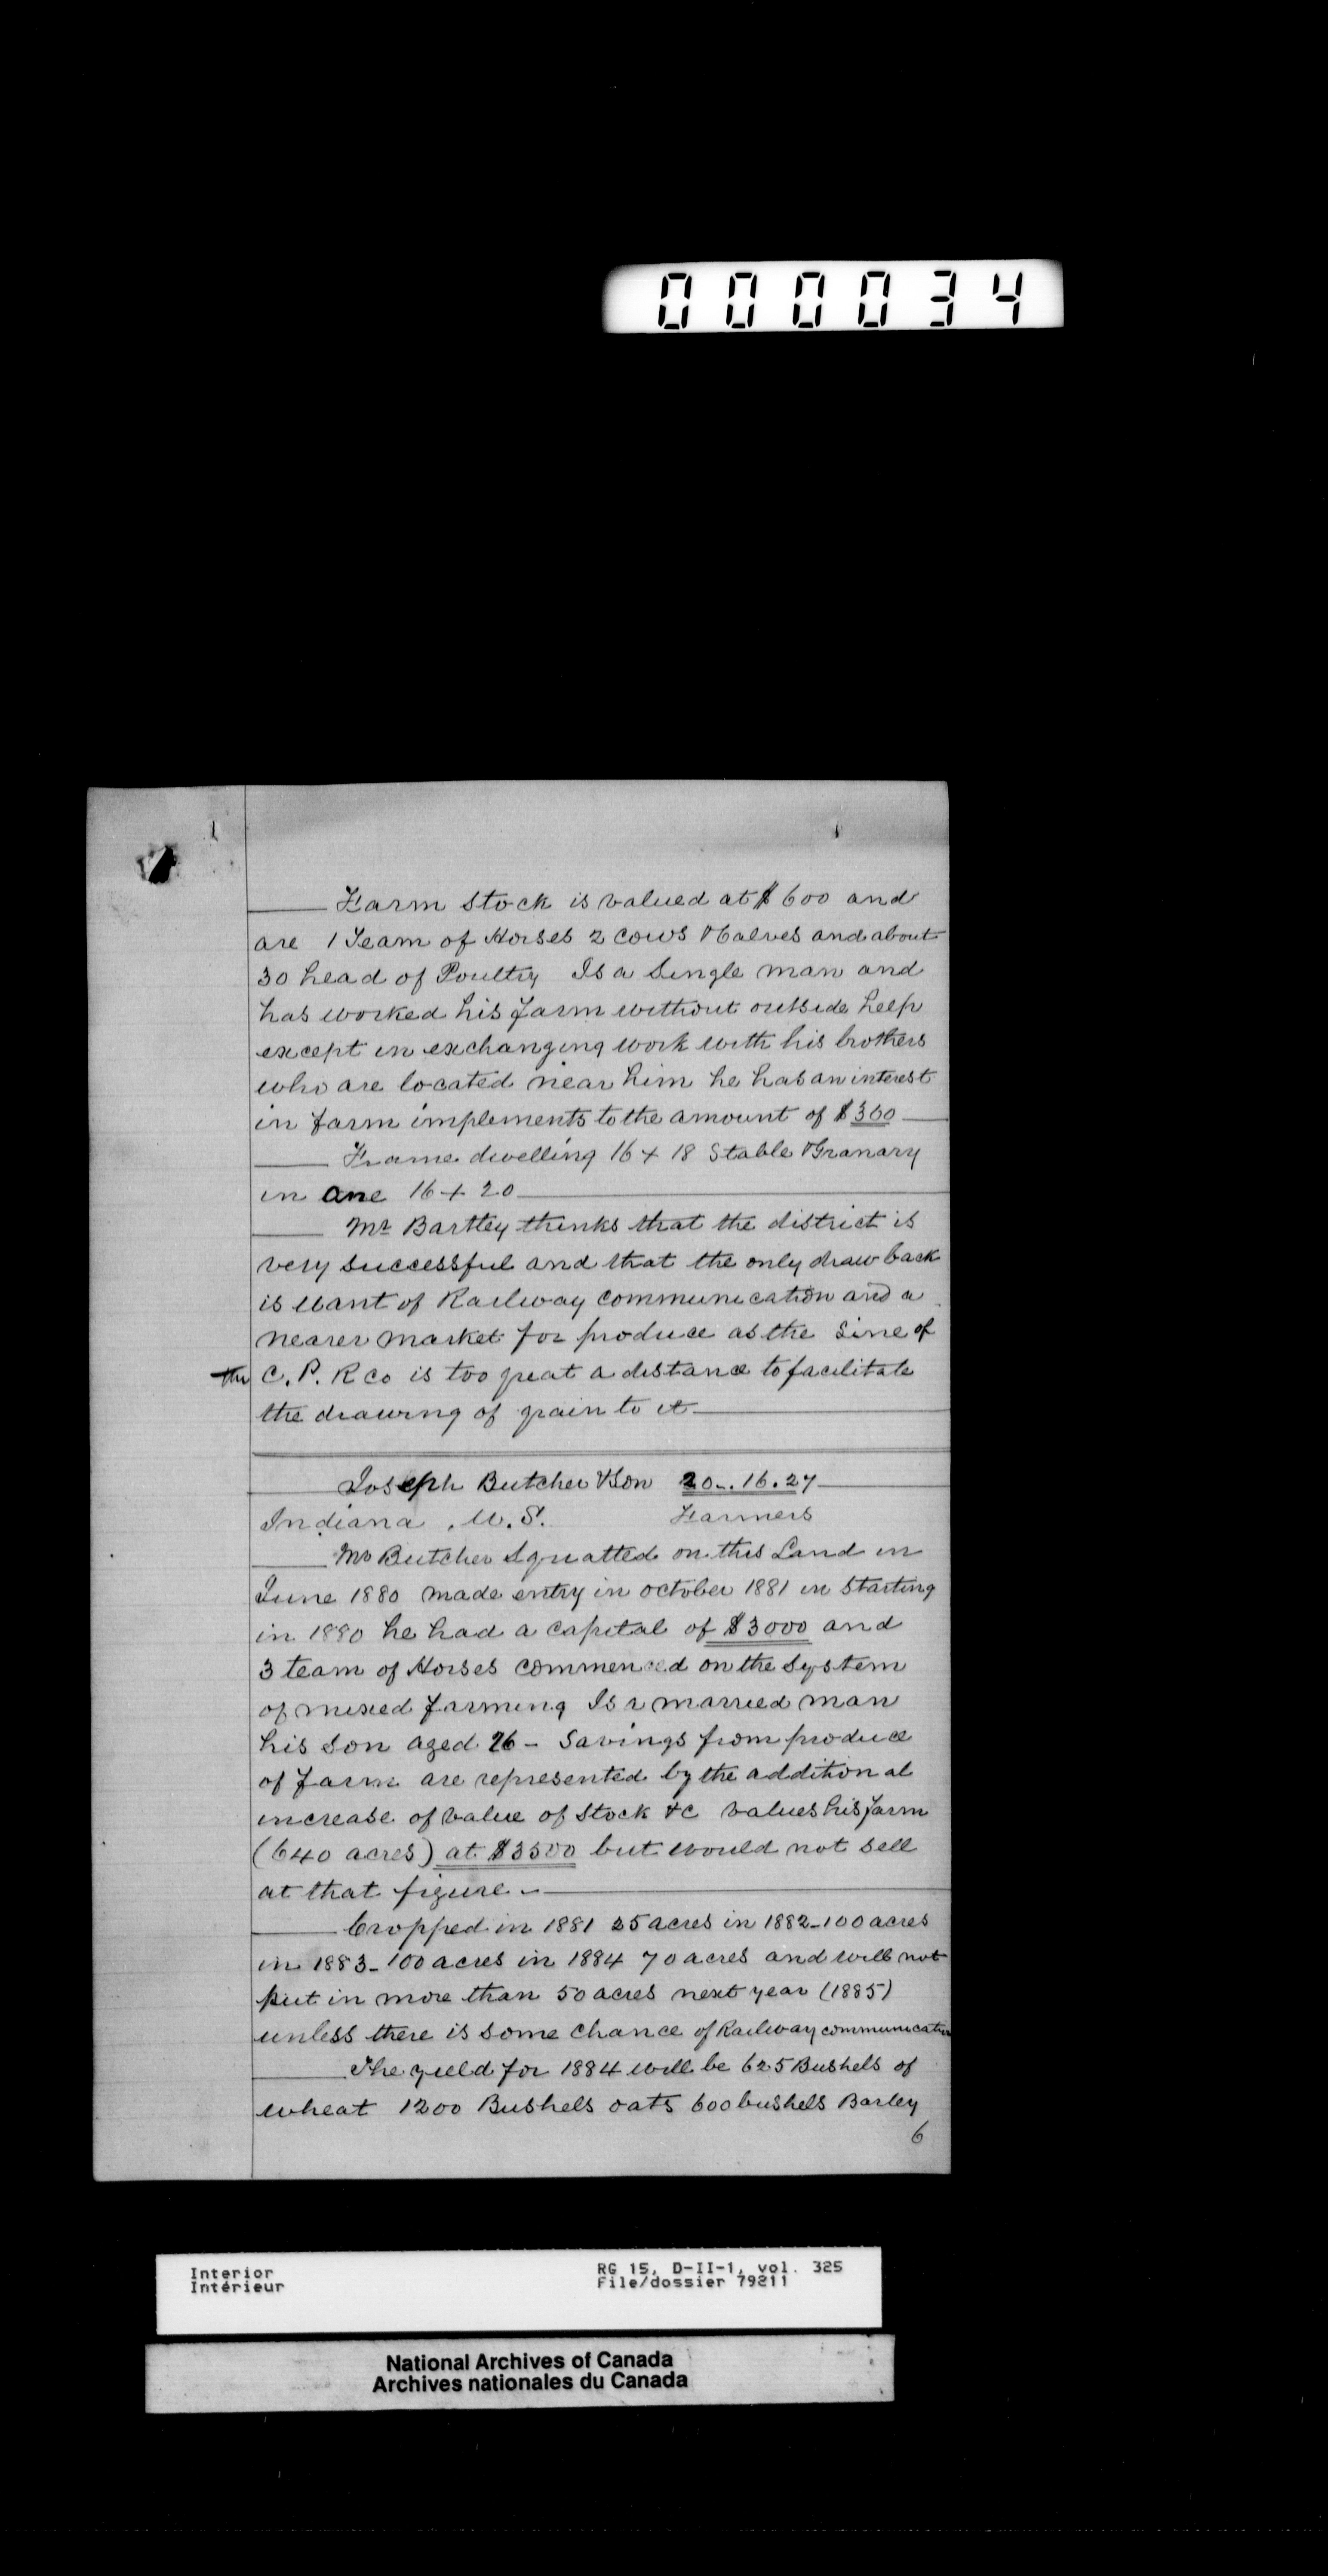 000034
Farm stock is valued at $600 and
are 1 Team of Horses 2 cows & Calves and about
30 head of Poultry Is a Single man and
has worked his farm without outside help
except in exchanging work with his brothers
who are located near him he has an interest
in farm implements to the amount of $300
Frame dwelling 16 + 18 Stable & Granary
in one 16 + 20
Mr Bartley thinks that the district is
very successful and that the only draw back
is want of Railway communication and a
nearer market for produce as the Line of
the C. P. R Co is too great a distance to facilitate
the drawing of grain to it
Joseph Butcher & Son 20 . 16 . 27
Indiana . U. S. Farmers
Mr Butcher Squatted on this Land in
June 1880 made entry in october 1881 in starting
in 1880 he had a capital of $3000 and
3 team of Horses commenced on the System
of mixed farming Is a married man
his son aged 26 - Savings from produce
of farm are represented by the additional
increase of value of stock &c values his farm
(640 acres) at $3500 but would not sell
at that figure
Cropped in 1881 25 acres in 1882 - 100 acres
in 1883 - 100 acres in 1884 70 acres and will not
put in more than 50 acres next year (1885)
unless there is some chance of Railway communication
The yield for 1884 will be 625 Bushels of
wheat 1200 Bushels oats 600 bushels Barley
6
Interior RG 15, D-II-1, vol. 325
Intérieur File/dossier 79211
National Archives of Canada
Archives nationales du Canada